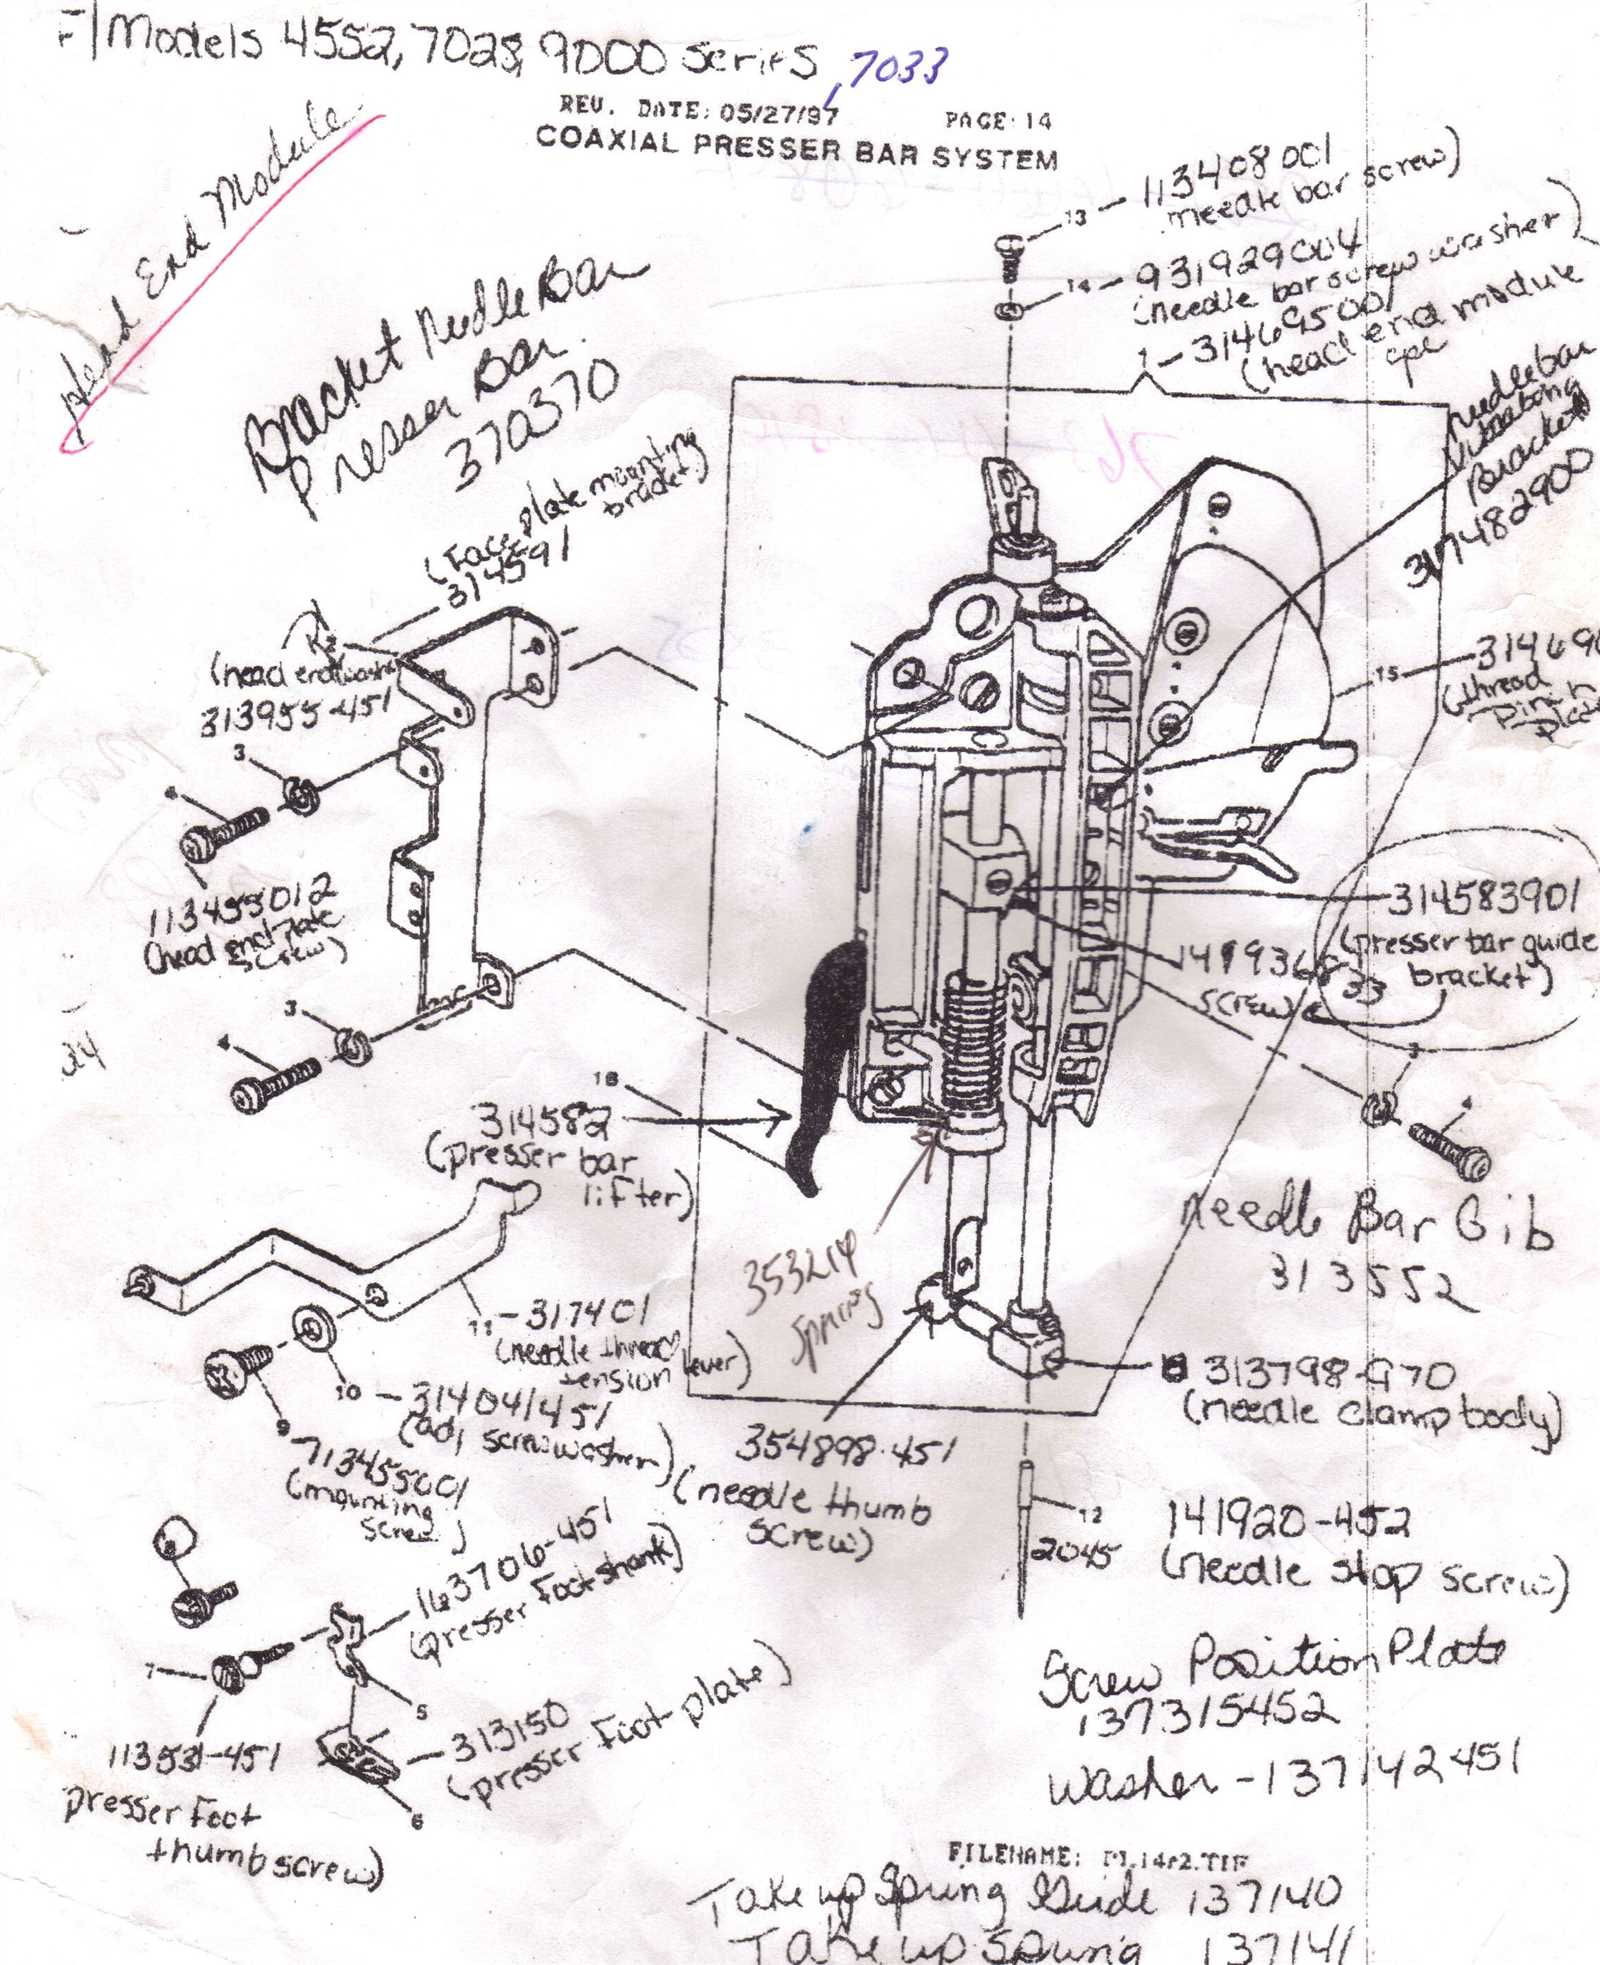 F/Models 4552, 7028, 9000 series, 7033
REV. DATE: 05/27/97 PAGE 14
COAXIAL PRESSER BAR SYSTEM
Head End Module
Bracket Needle Bar
Presser Bar
370370
13 - 113408001
needle bar screw)
14 - 931929004
(needle bar screw washer)
1 - 314695001
(head end module
cpl
needle bar
Bracket
317482900
(Face plate mounting
bracket)
314591
(head end washer
313955-451
3
4
113455012
(head end plate
screw)
3
4
24
15 - 31469
(thread
Pinch
Plate
314583901
(presser bar guide
bracket)
33
screw)
3
4
18
314582
(presser bar
lifter)
353214
spring
Needle Bar Gib
313552
11 - 317401
(needle thread
tension lever)
10 - 314041451
(adj screw washer)
9
713455001
(mounting
screw)
313798-G70
(needle clamp body)
354898-451
(needle thumb
screw)
12
2045
141920-452
(needle stop screw)
163706-451
(presser foot shank)
7
5
313150
(presser foot plate)
6
113531-451
presser foot
thumb screw)
Screw Position Plate
137315452
Washer - 137142451
FILENAME:
Take up Spring Guide 137140
Take up Spring 137141